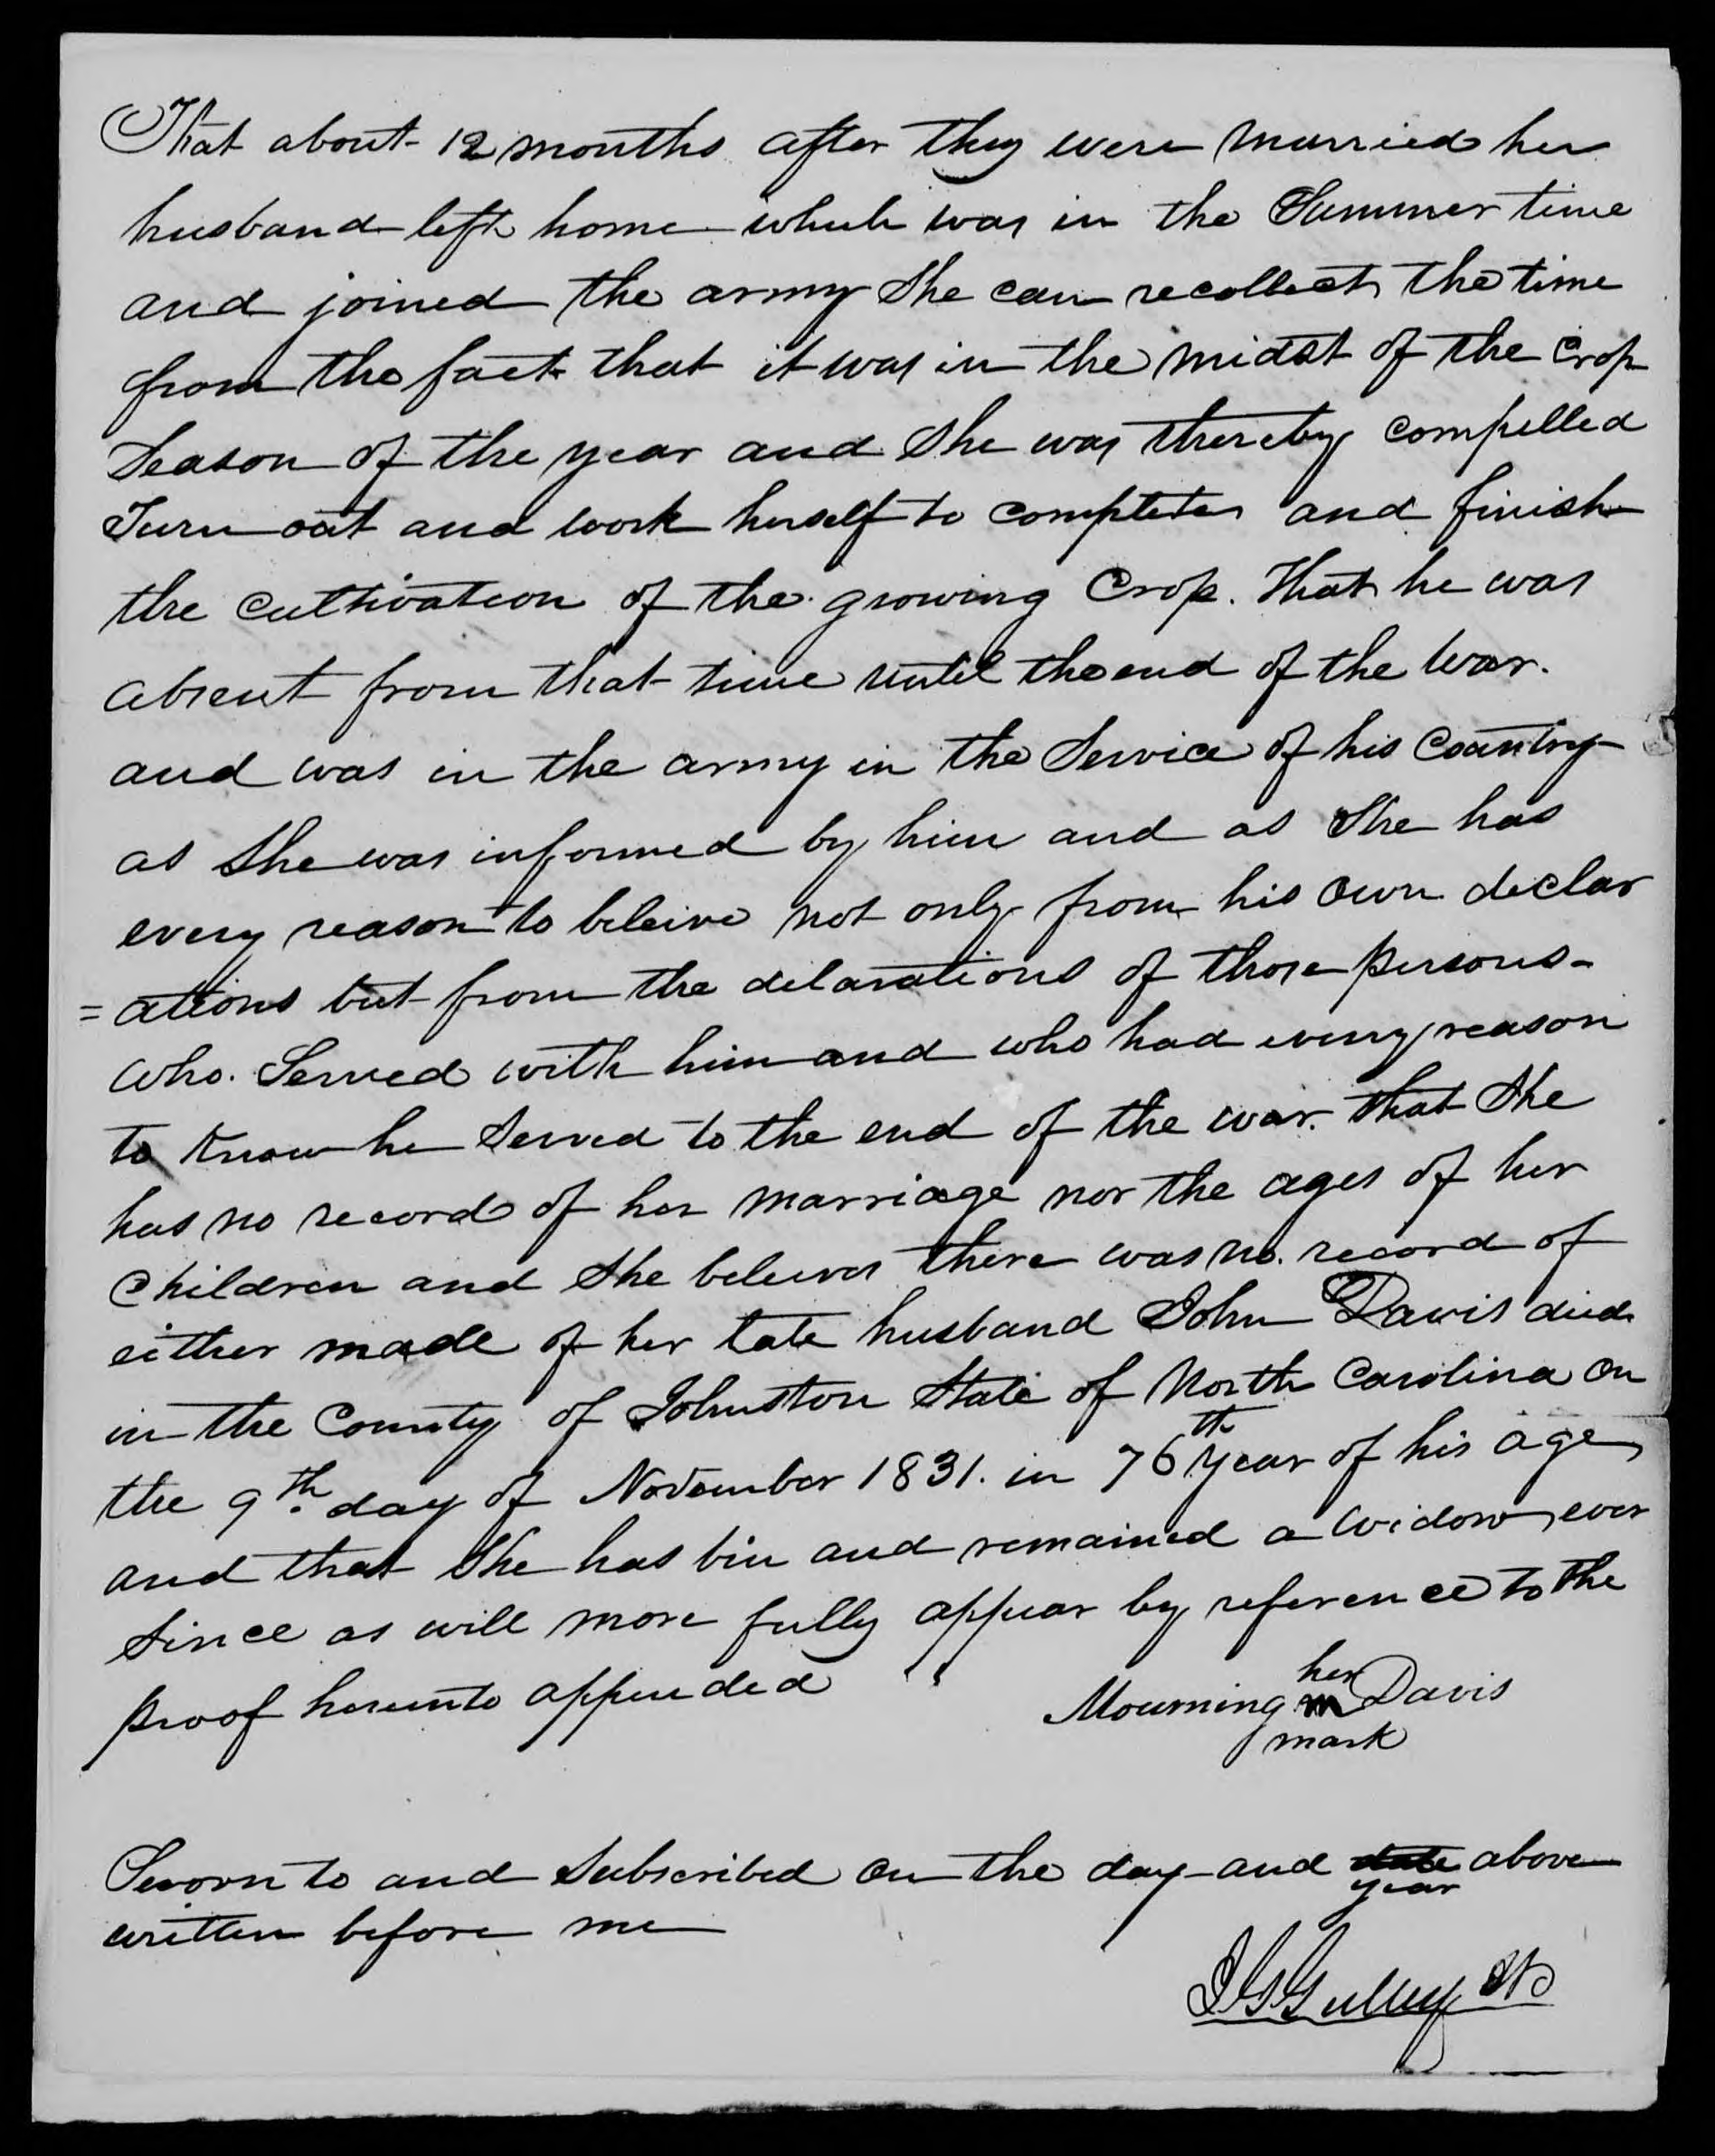 That about 12 months after they were married her
husband left home which was in the Summer time
and joined the army She can recollect the time
from the fact that it was in the midst of the Crop
Season of the year and She was thereby compelled
Turn out and work herself to complete and finish
the cultivation of the growing Crop. That he was
absent from that time until the end of the War.
and was in the army in the Service of his Country
as She was informed by him and as She has
every reason to beleive not only from his own declar
=ations but from the delarations of those persons
who. Served with him and who had every reason
to know he Served to the end of the war. that She
has no record of her marriage nor the ages of her
Children and She beleives there was no. record of
either made of her late husband John Davis died
in the County of Johnston State of North Carolina on
the 9th. day of November 1831. in 76th year of his age
and that She has bin and remained a widow ever
Since as will more fully appear by reference to the
proof hereunto appended
her
Mourning m Davis
mark
Sworn to and Subscribed on the day and date above
year
written before me
Gulley